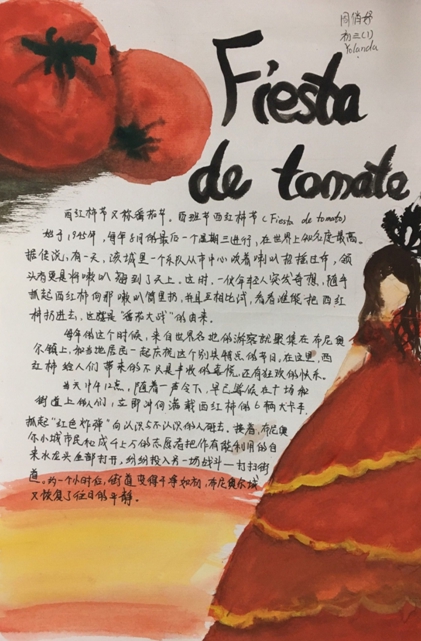 周俏妤
初三(1)
Yolanda
Fiesta
de tomate
西红柿节又称番茄节。西班牙西红柿节(Fiesta de tomate)
始于1945年,每年8月的最后一个星期三进行,在世界上知名度最高。
据传说,有一天,该城里一个乐队从市中心吹着喇叭招摇过市,领
头者更是将喇叭翘到了天上。这时,一伙年轻人突发奇想,随手
抓起西红柿向那喇叭筒里扔,并且互相比试,看看谁能把西红
柿扔进去,这就是“番茄大战”的由来。
每年的这个时候,来自世界各地的游客就聚集在布尼奥
尔镇上,和当地居民一起庆祝这个别具特色的节日,在这里,西
红柿给人们带来的不只是丰收的喜悦,还有狂欢的快乐。
当天中午12点,随着一声令下,早已等候在广场和
街道上的人们,立即冲向满载西红柿的6辆大卡车,
抓起“红色炸弹”向认识与不认识的人砸去。接着,布尼奥
尔小城市民和成千上万的志愿者把所有能利用的自
来水龙头全部打开,纷纷投入另一场战斗—打扫街
道。约一个小时后,街道变得干净如初,布尼奥尔城
又恢复了往日的平静。